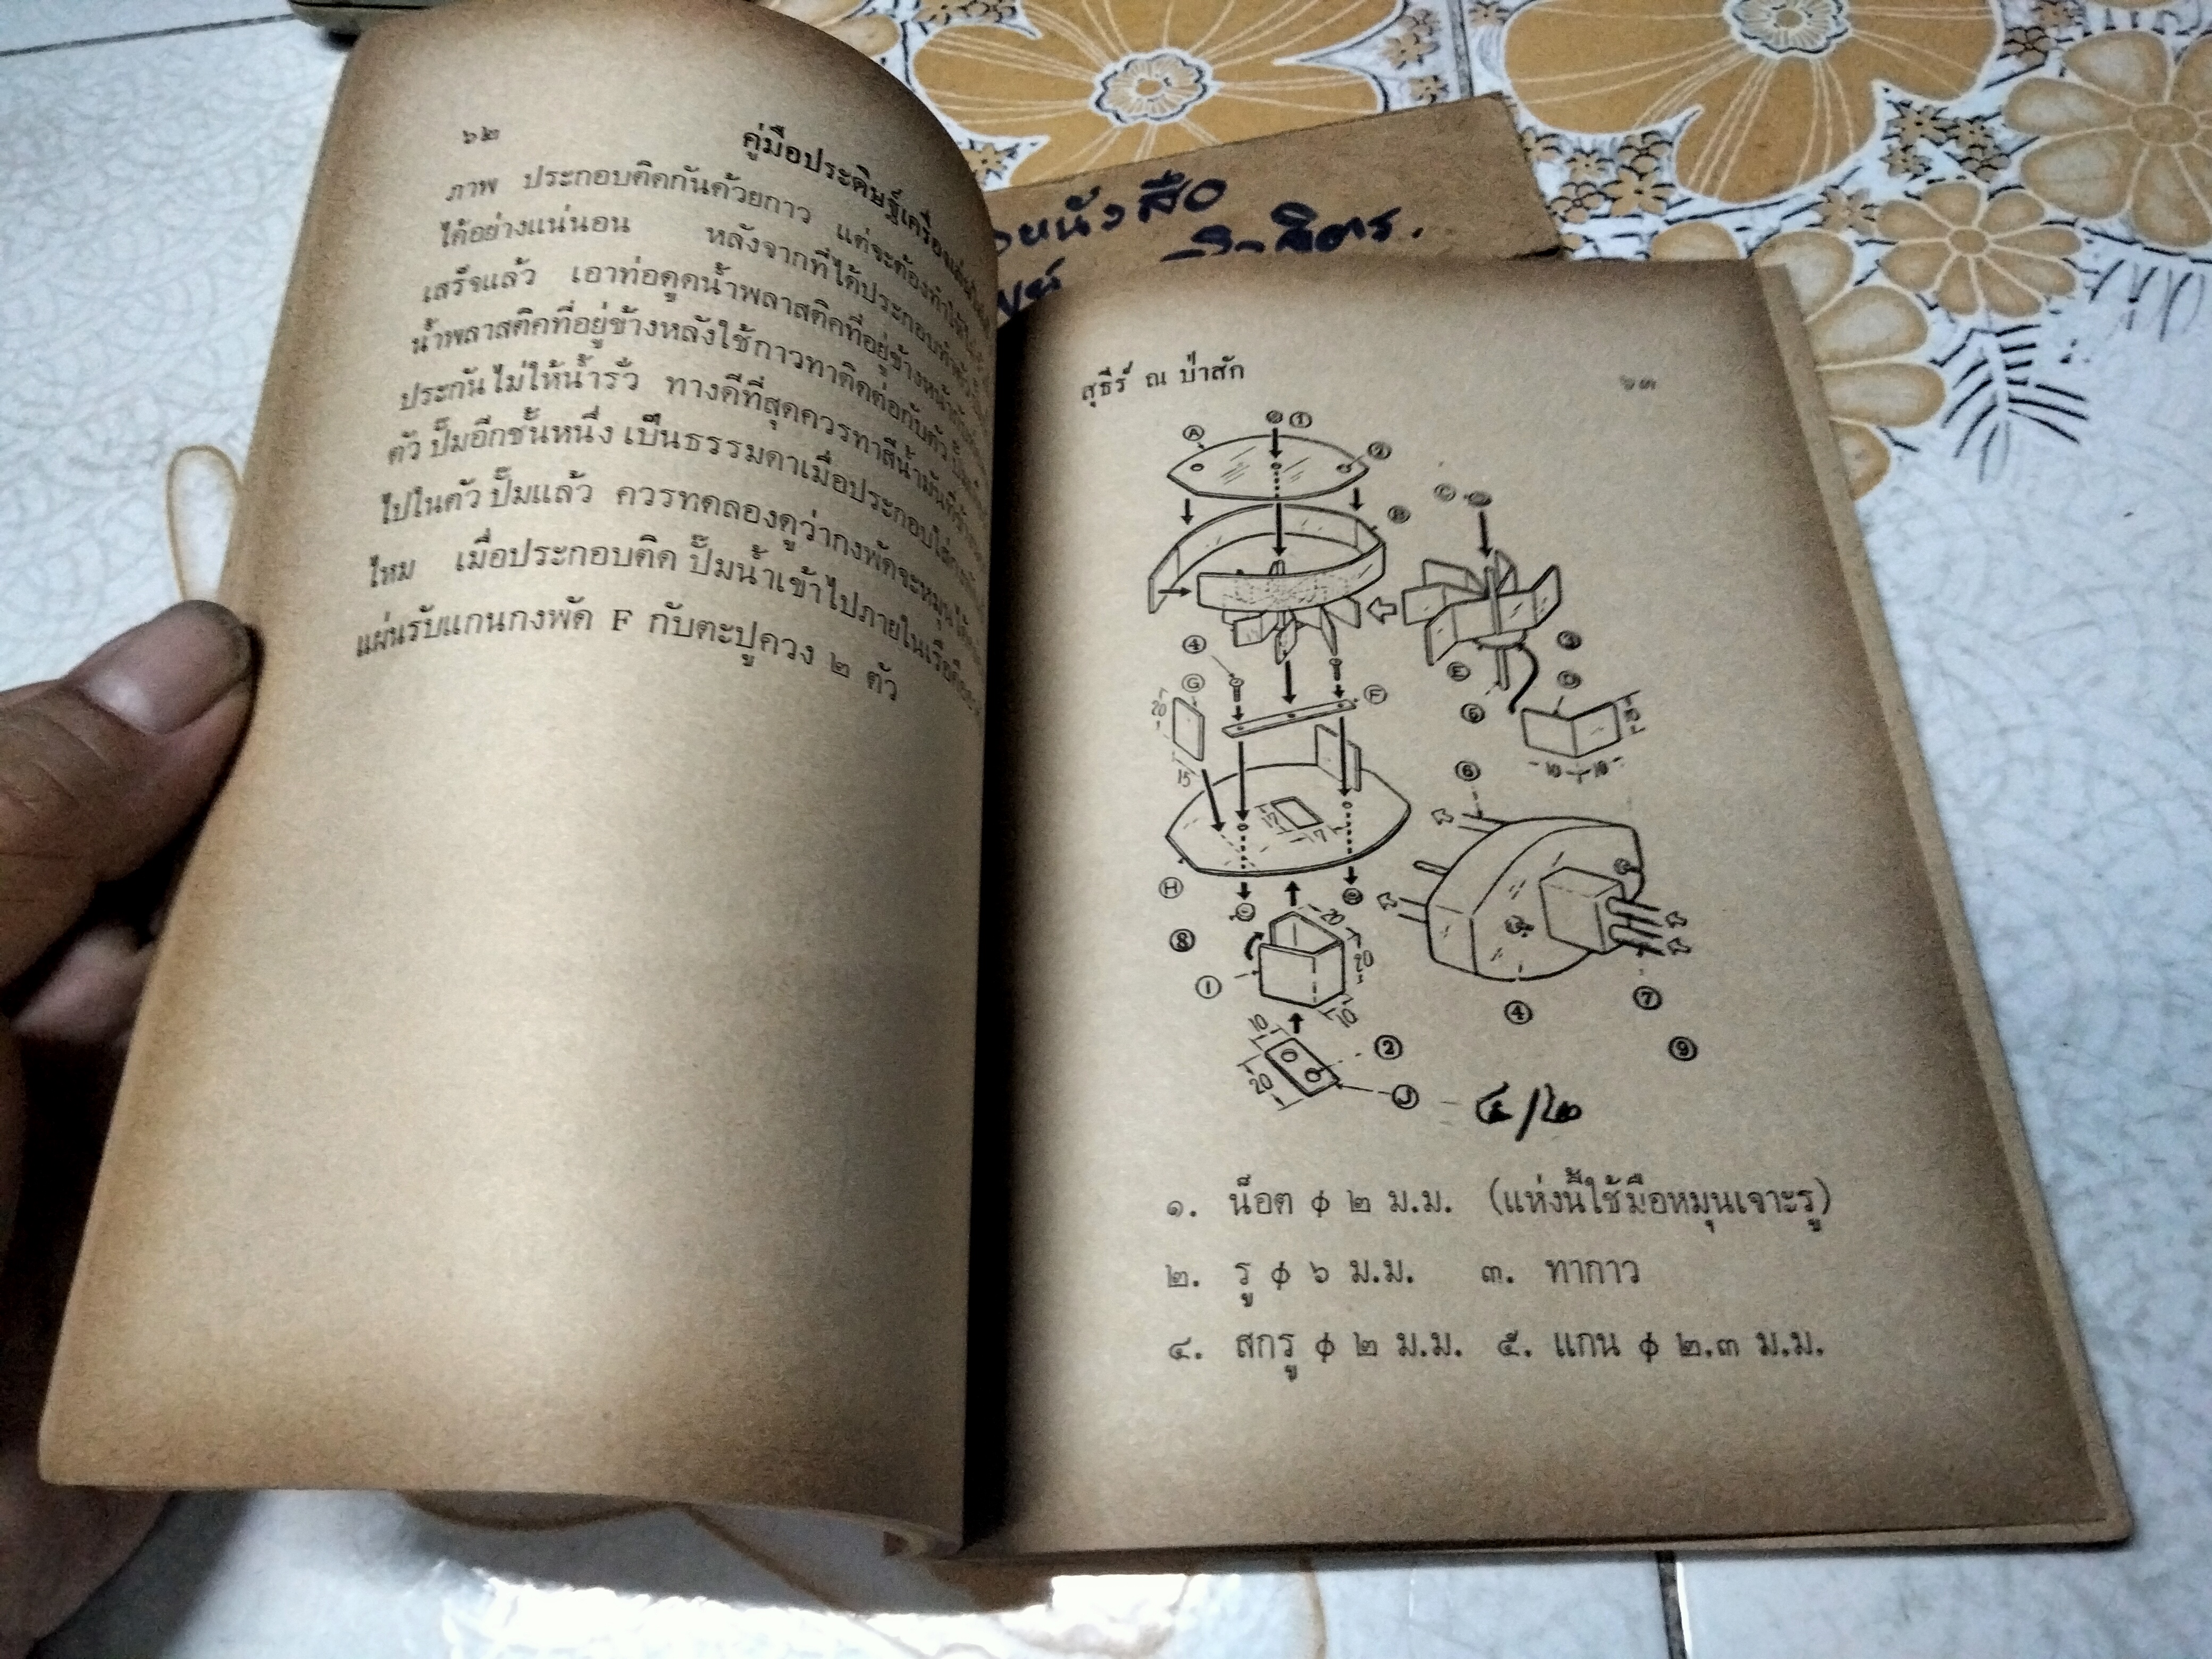 ๖๒ คู่มือประดิษฐ์เครื่องเล่น
ภาพ ประกอบติดกันด้วยกาว แต่จะต้องทำให้
ได้อย่างแน่นอน หลังจากที่ได้ประกอบ
เสร็จแล้ว เอาท่อดูดน้ำพลาสติคที่อยู่ข้างหน้า
น้ำพลาสติคที่อยู่ข้างหลังใช้กาวทาติดต่อกับตัว
ประกันไม่ให้น้ำรั่ว ทางดีที่สุดควรทาสีน้ำมันที่
ตัวปั๊มอีกชั้นหนึ่ง เป็นธรรมดาเมื่อประกอบใส่
ไปในตัวปั๊มแล้ว ควรทดลองดูว่ากงพัดจะหมุนได้
ไหม เมื่อประกอบติด ปั๊มน้ำเข้าไปภายในเรือ
แผ่นรับแกนกงพัด F กับตะปูควง ๒ ตัว
หนังสือ
สุธีร์ ณ ป่าสัก ๖๓
A 1 2
B C
4 3
G F E D
20 5
15 10 10
6
12 7
H
8 20
1 20
10 4 7
10 2 9
20 J ๔/๒๐
๑. น็อต ϕ ๒ ม.ม. (แห่งนี้ใช้มือหมุนเจาะรู)
๒. รู ϕ ๖ ม.ม. ๓. ทากาว
๔. สกรู ϕ ๒ ม.ม. ๕. แกน ϕ ๒.๓ ม.ม.